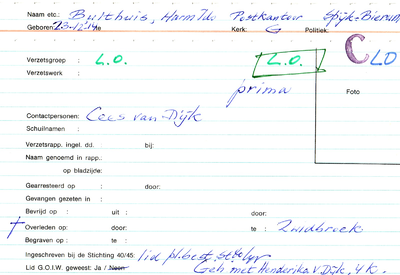 Naam etc.: Bulthuis, Harm Ido Postkantoor Spijk-Bierum
Geboren: 23-12-'14 te Kerk: G Politiek:
C LO
Verzetsgroep : L.O. L.O.
Verzetswerk :
prima
Foto
Contactpersonen: Cees van Dijk
Schuilnamen :
Verzetsrapp. ingel. dd. bij:
Naam genoemd in rapp.:
op bladzijde:
Gearresteerd op : door:
Gevangen gezeten in :
Bevrijd op : uit : door:
† Overleden op: door: te : Zuidbroek
Begraven op : te :
Ingeschreven bij de Stichting 40/45: lid pl. best.
Lid G.O.I.W. geweest: Ja / Neen Geh met Henderika v. Dijk, 4 K.